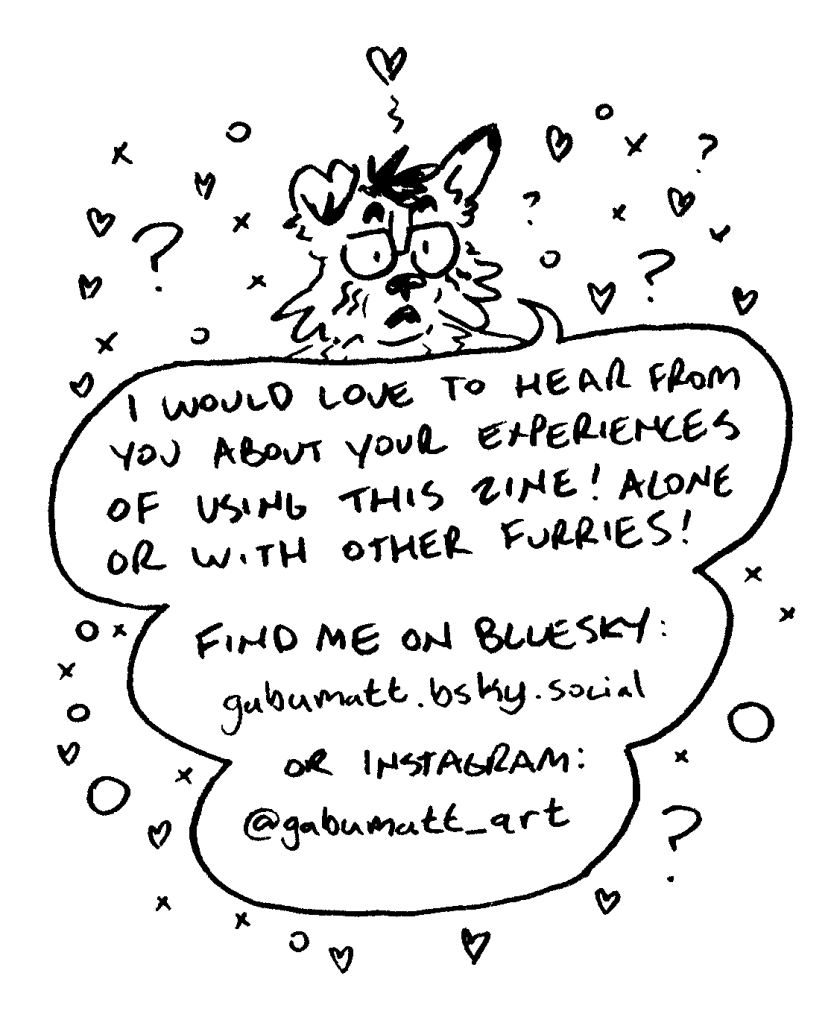 I WOULD LOVE TO HEAR FROM
YOU ABOUT YOUR EXPERIENCES
OF USING THIS ZINE! ALONE
OR WITH OTHER FURRIES!
FIND ME ON BLUESKY:
gabumatt.bsky.social
OR INSTAGRAM:
@gabumatt_art